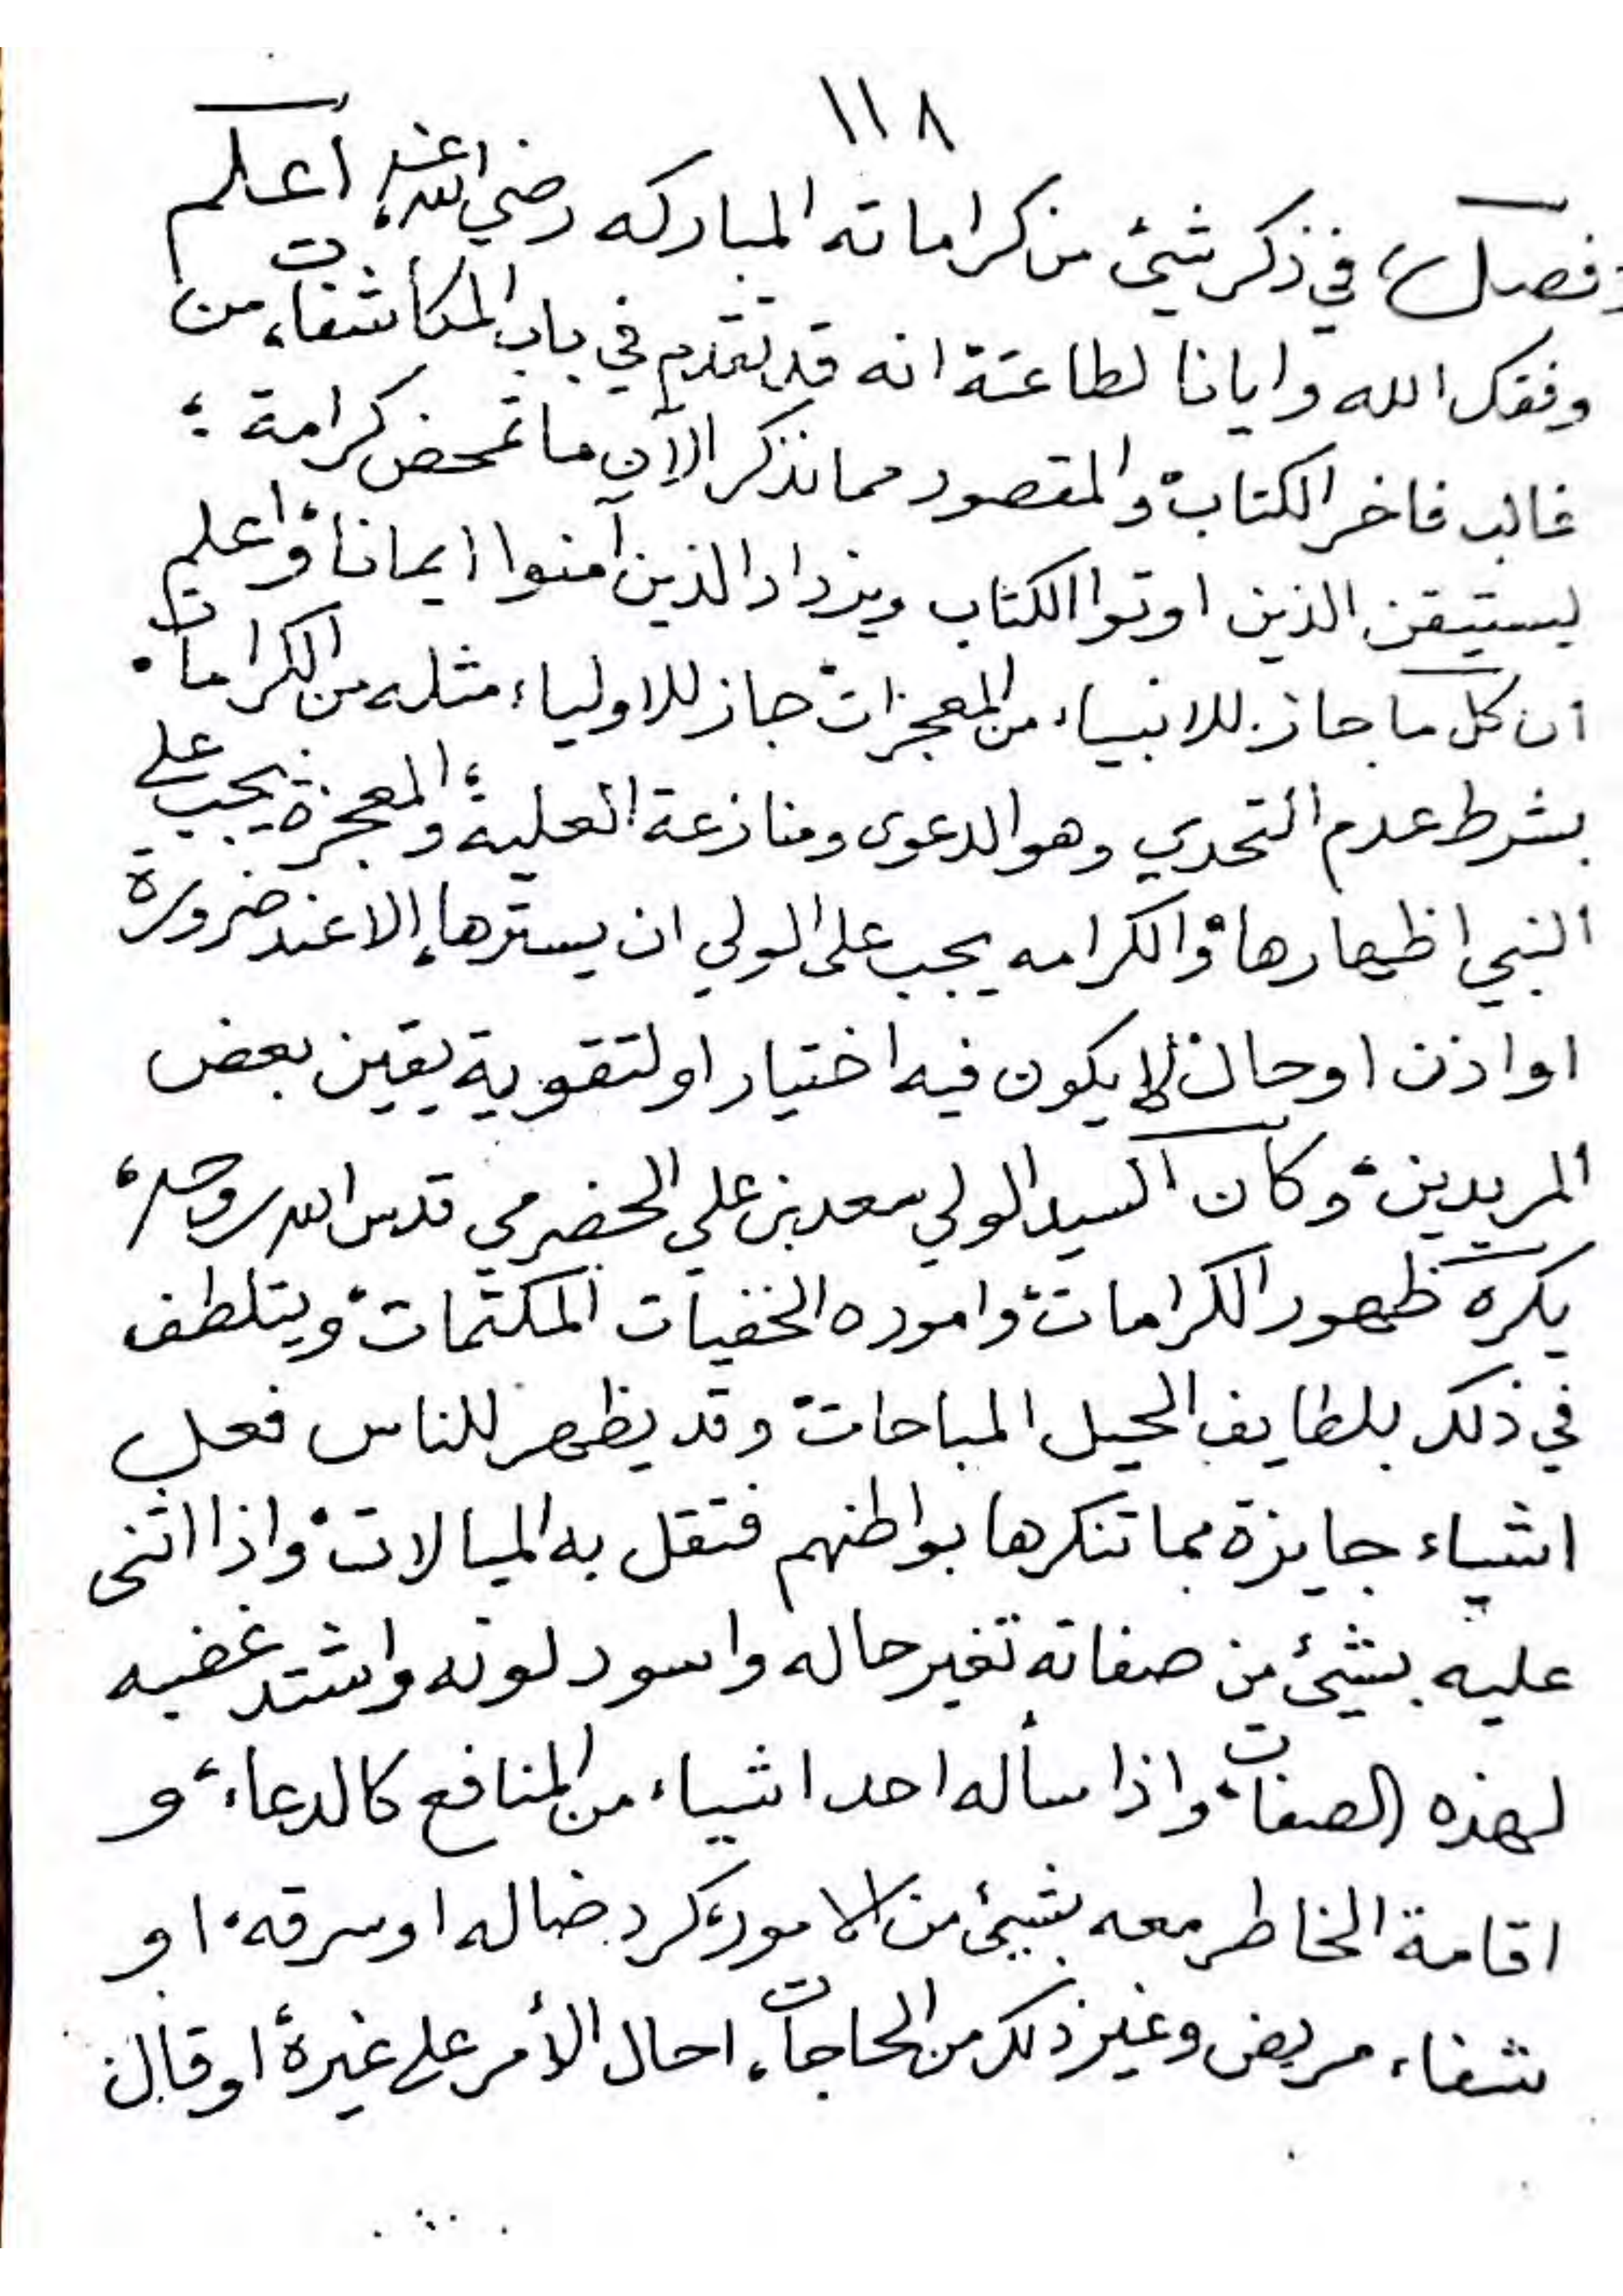 ١١٨
(فصل) في ذكر شيئ من كراماته المباركه رضي الله عنه اعلم
وفقك الله وايانا لطاعته انه قد تقدم في باب المكاشفات من
غالب فاخر الكتاب والمقصود مما نذكر الآن ما تمحض كرامة ؛
ليستيقن الذين اوتوا الكتاب ويزداد الذين آمنوا ايمانا واعلم
ان كل ما جاز للانبياء من المعجزات جاز للاولياء مثله من الكرامات
بشرط عدم التحدي وهو الدعوى ومنازعة العلية والمعجزة يجب على
النبي اظهارها والكرامه يجب على الولي ان يسترها الا عند ضرورة
او اذن او حال لا يكون فيه اختيار او لتقوية يقين بعض
المريدين وكان السيد الولي سعد بن علي الحضرمي قدس الله روحه
يكره ظهور الكرامات واموره الخفيات المكتمات ويتلطف
في ذلك بلطايف الحيل المباحات وقد يظهر للناس فعل
اشياء جايزة مما تنكرها بواطنهم فتقل به المبالات واذا اثنى
عليه بشيئ من صفاته تغير حاله واسود لونه واشتد غضبه
لهذه الصفات واذا سأله احد اشياء من المنافع كالدعاء و
اقامة الخاطر معه بشيئ من الامور كرد ضاله او سرقه او
شفاء مريض وغير ذلك من الحاجات احال الأمر على غيره او قال